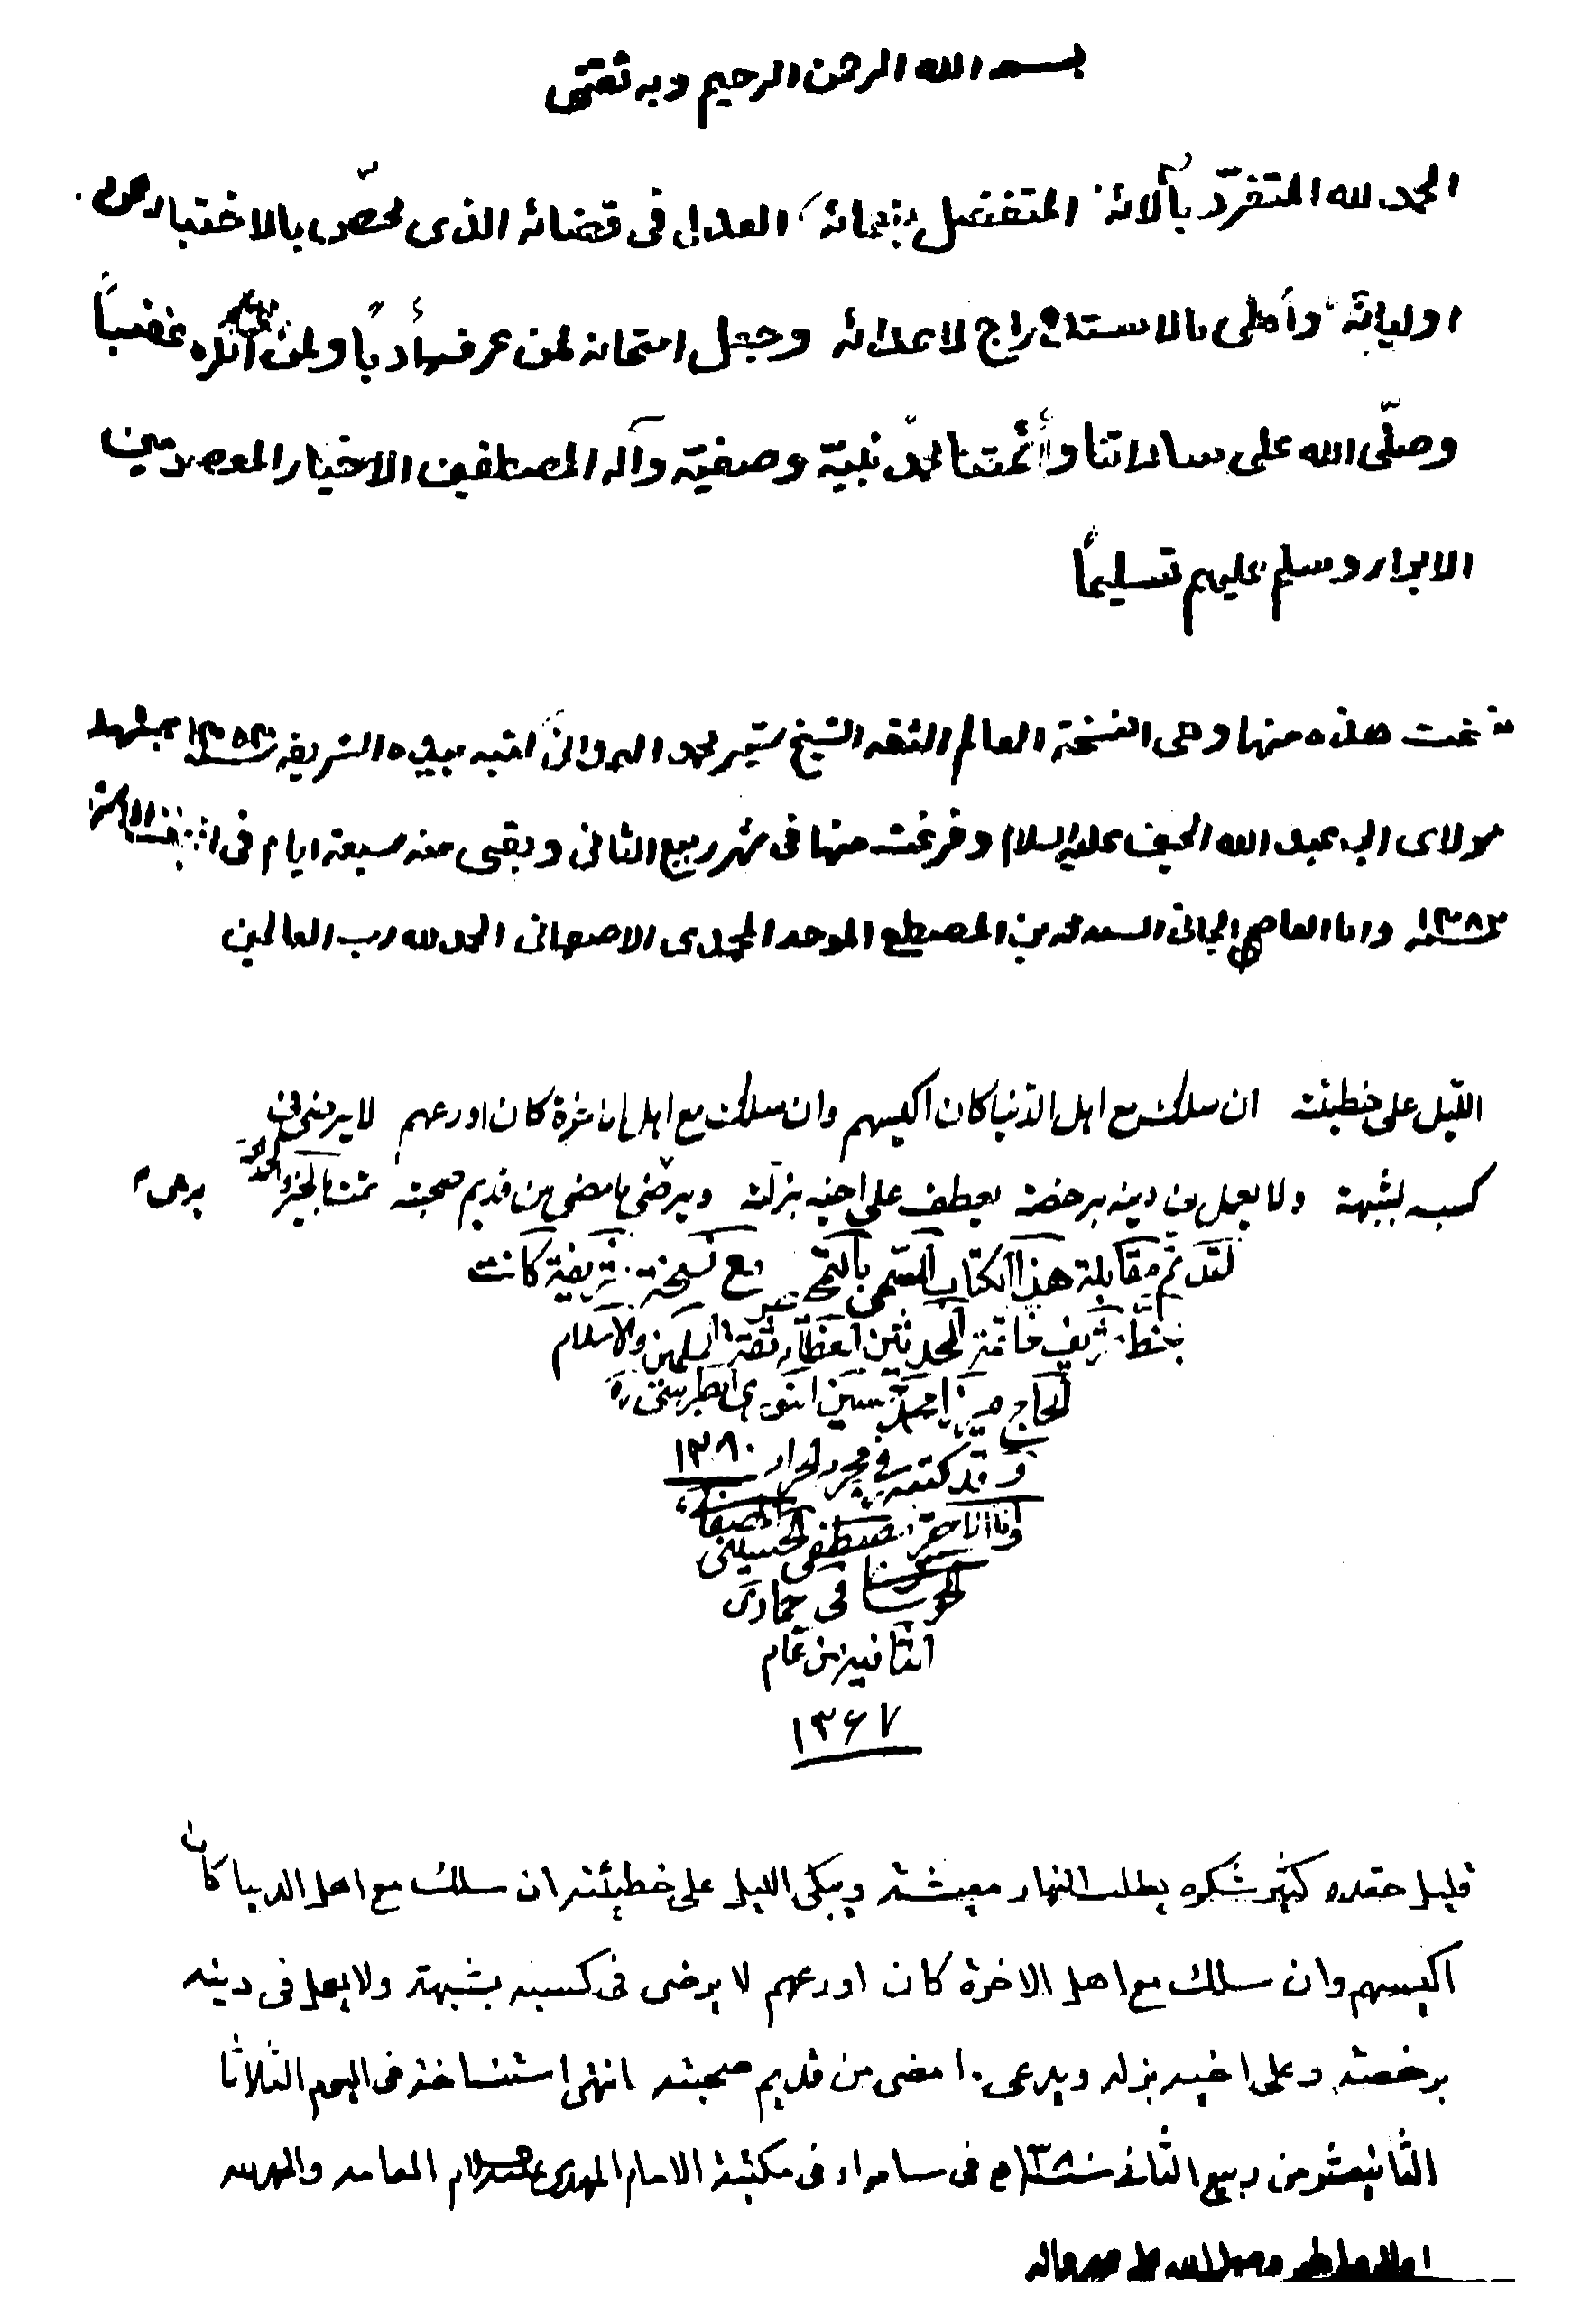 بسم الله الرحمن الرحيم وبه ثقتى
الحمد لله المتفرّد بآلائه المتفضل بنعمائه العدل فى قضائه الذى محّص بالاختبار من
اوليائه وأملى بالاستدراج لاعدائه وجعل امتحانه لمن عرفه أدباً ولمن انكره غضباً
وصلّى الله على ساداتنا وأئمتنا محمّد نبيّه وصفيّه وآله المصطفين الاخيار المعصومين
الابرار وسلم عليهم تسليماً
هذه منها وهى النسخة العالم الثقه الشيخ شير محمد الهمدانى كتبه بيده الشريفه بمشهد
مولاى ابى عبد الله الحسين عليه السلام وفرغت منها فى شهر ربيع الثانى وبقى منه سبعة ايام فى
سنة ١٣٨٢ وانا العاصى الجانى السيد محمد بن المصطفى الموحد المحمدى الاصفهانى الحمد لله رب العالمين
الليل على خطيئته ان سلك مع اهل الدنيا كان اكيسهم وان سلك مع اهل الاخرة كان اورعهم لا يرضى فى
كسبه بشبهة ولا يعمل فى دينه برخصة يعطف على اخيه بزلته ويرضى ما مضى من قديم صحبته تمت بالخير
لقد تم مقابلة هذا الكتاب المسمى بالتمحيص مع نسخة شريفة كانت
بخط شريف خاتمة المحدثين العظام ثقة المسلمين والاسلام
الحاج ميرزا حسين النورى الطبرسى ره
وقد كتبه فى ١٣٨٠
وانا الاحقر مصطفى الحسينى الصفائى
فى جمادى
الثانية من عام
١٣٦٧
قليل حقده كثير شكره يطلب النهار معيشته ويبكى الليل على خطيئته ان سلك مع اهل الدنيا كان
اكيسهم وان سلك مع اهل الاخرة كان اورعهم لا يرضى فى كسبه بشبهة ولا يعمل فى دينه
برخصة وعلى اخيه بزله ويرعى ما مضى من قديم صحبته انتهى استنساخه فى اليوم الثلاثا
الثانيعشر من ربيع الثانى فى سامراء فى مكتبة الامام المهدى العامه والحمد لله
اولا وصلى الله على محمد واله